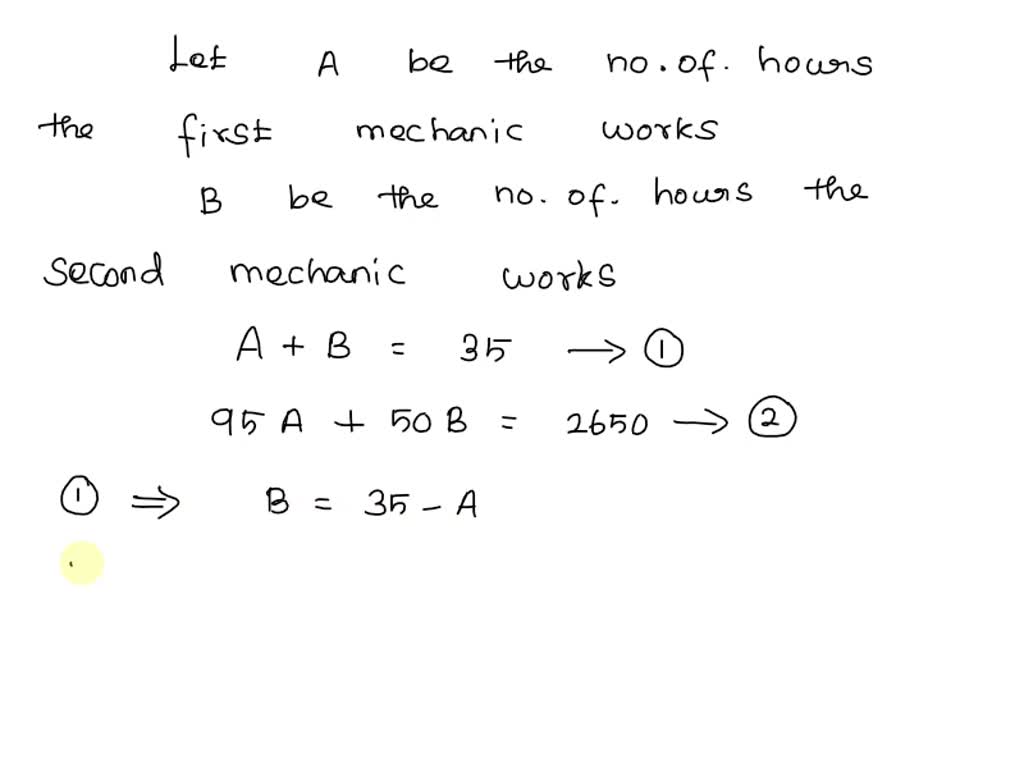 Let A be the no. of. hours
the first mechanic works
B be the no. of. hours the
second mechanic works
A + B = 35 → ①
95 A + 50 B = 2650 → ②
① ⇒ B = 35 - A